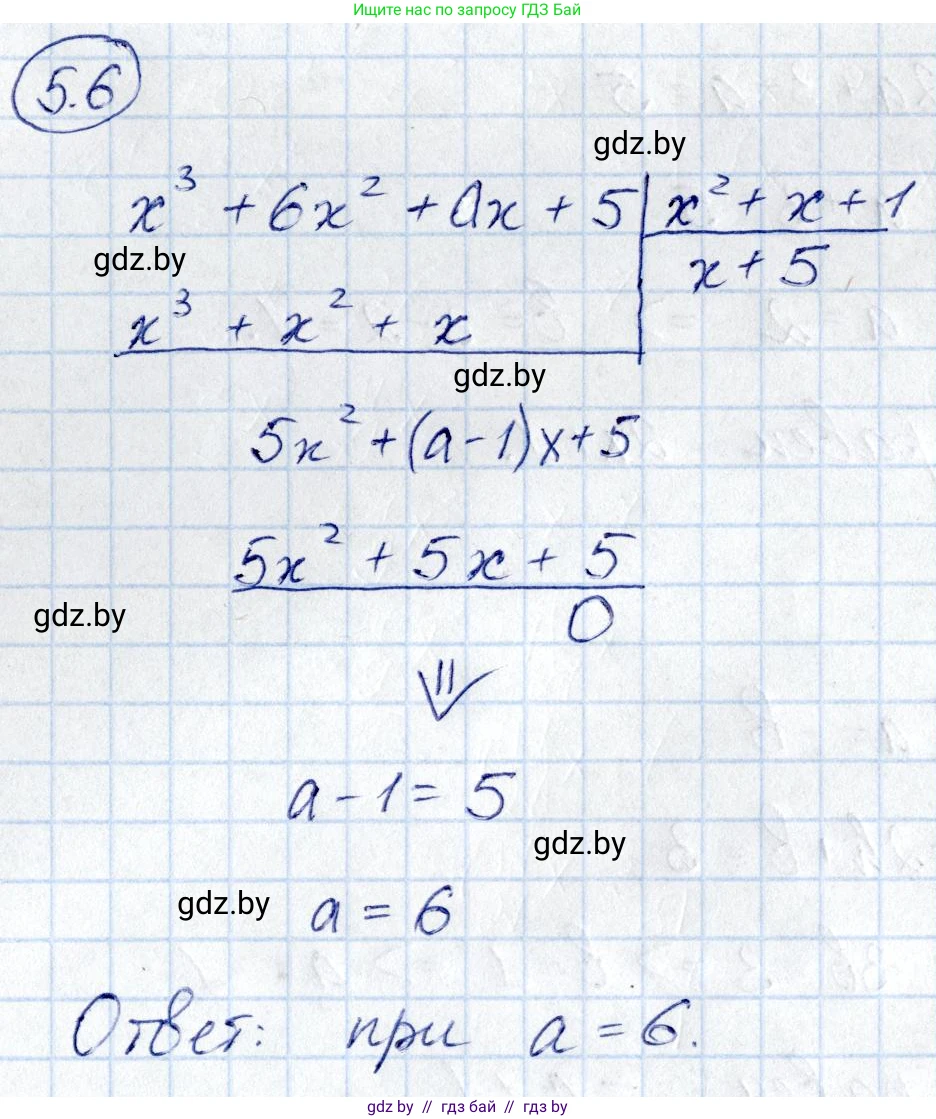 Ищите нас по запросу ГДЗ Бай
5.6
gdz.by
x³ + 6x² + ax + 5 | x² + x + 1
gdz.by
x + 5
x³ + x² + x
gdz.by
5x² + (a - 1)x + 5
5x² + 5x + 5
gdz.by
0
⇓
a - 1 = 5
gdz.by
gdz.by
a = 6
Ответ: при a = 6.
gdz.by // гдз бай // гдз by